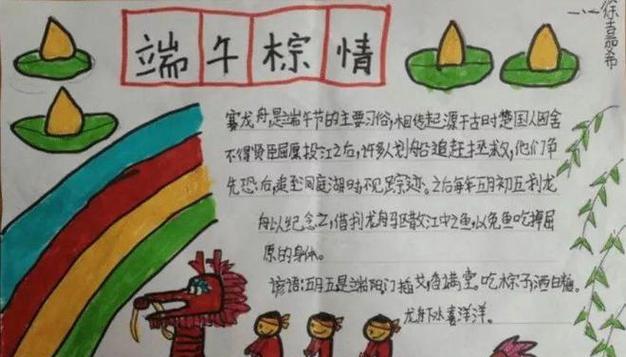 端午棕情
徐嘉希
赛龙舟,是端午节的主要习俗,相传起源于古时楚国人因舍
不得贤臣屈原投江之后,许多人划船追赶拯救,他们争
先恐后,追至洞庭湖时不见踪迹。之后每年五月初五划龙
舟以纪念之,借划龙舟驱散江中之鱼,以免鱼吃掉屈
原的身体。
谚语:五月五是端阳门插艾,香满堂。吃粽子洒白糖。
龙舟下水喜洋洋。